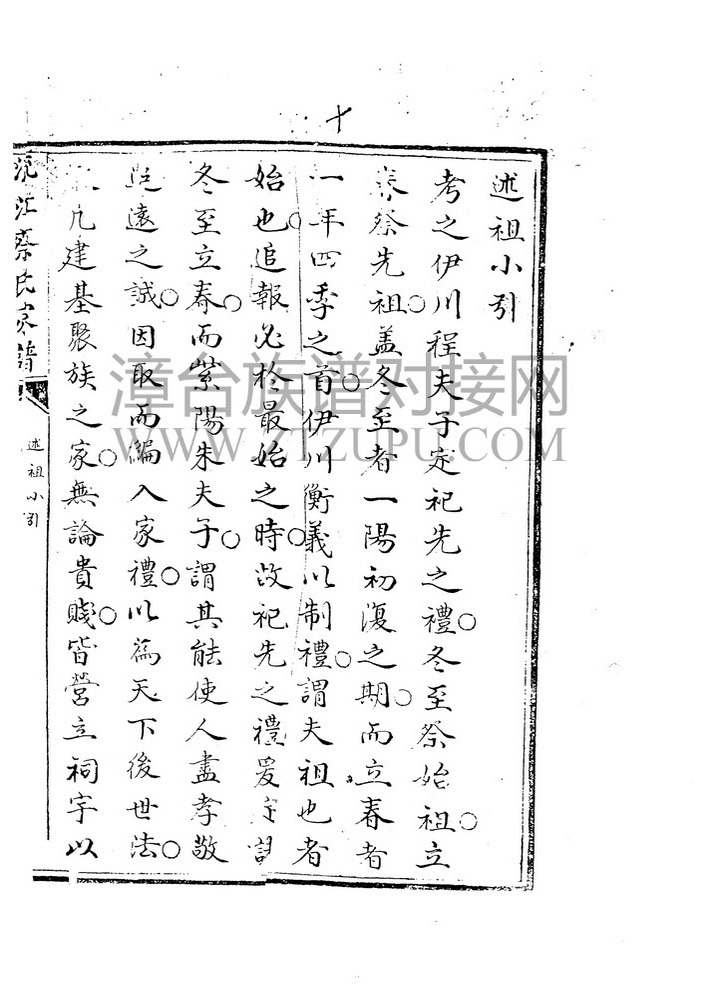 十
述祖小引
考之伊川程夫子定祀先之禮○冬至祭始祖○立
春祭先祖○盖冬至者一陽初復之期○而立春者
一年四季之首○伊川衡義以制禮○謂夫祖也者
始也○追報必於最始之時○故祀先之禮爰定
冬至立春○而紫陽朱夫子○謂其能使人盡孝敬
遠之誠○因取而編入家禮○以為天下後世法○
凡建基聚族之家○無論貴賤○皆營立祠宇以
江蔡氏家譜
述祖小引
漳台族谱对接网
WWW.ZTZUPU.COM